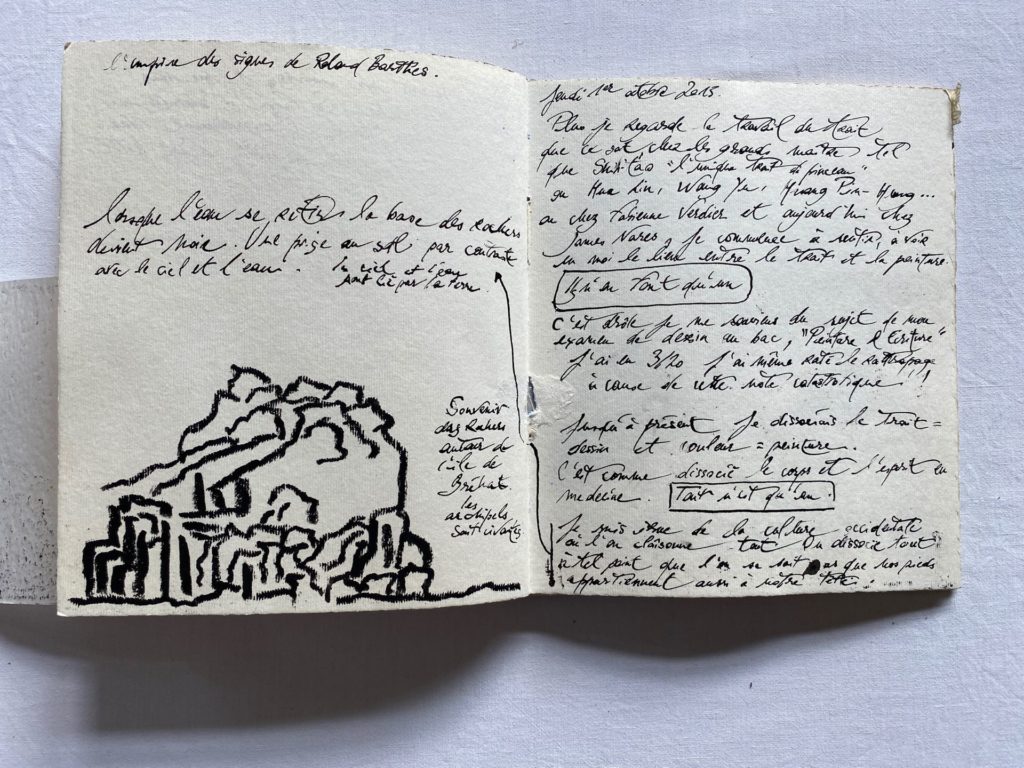 l'empire des signes de Roland Barthes.
lorsque l'eau se retire la base des rochers
devient noire. Une prise au sol par contraste
avec le ciel et l'eau.
le ciel et l'eau
sont lié par la forme.
Souvenir
des Rochers
autour de
l'île de
Bréhat.
les
archipels
sont
jeudi 1er octobre 2015.
Plus je regarde le travail du trait
que ce soit chez les grands maîtres tel
que Shitao "l'unique trait de pinceau"
ou Hua Lin, Wang Yu, Huang Pin-Hung...
ou chez Fabienne Verdier et aujourd'hui chez
James Nares, je commence à sentir, à voir
en moi le lien entre le trait et la peinture.
Ils n'en font qu'un
C'est drôle je me souviens du sujet de mon
examen de dessin au bac, "Peinture & Ecriture"
j'ai eu 3/20 j'ai même raté le rattrapage
à cause de cette note catastrophique !!
Jusqu'à présent je dissociais le trait =
dessin et couleur = peinture.
C'est comme dissocié le corps et l'esprit en
medecine. Tout n'est qu'un.
Je suis issue de la culture occidentale
où l'on cloisonne tout. On dissocie tout
à tel point que l'on ne sait pas que nos pieds
appartiennent aussi à notre tête !